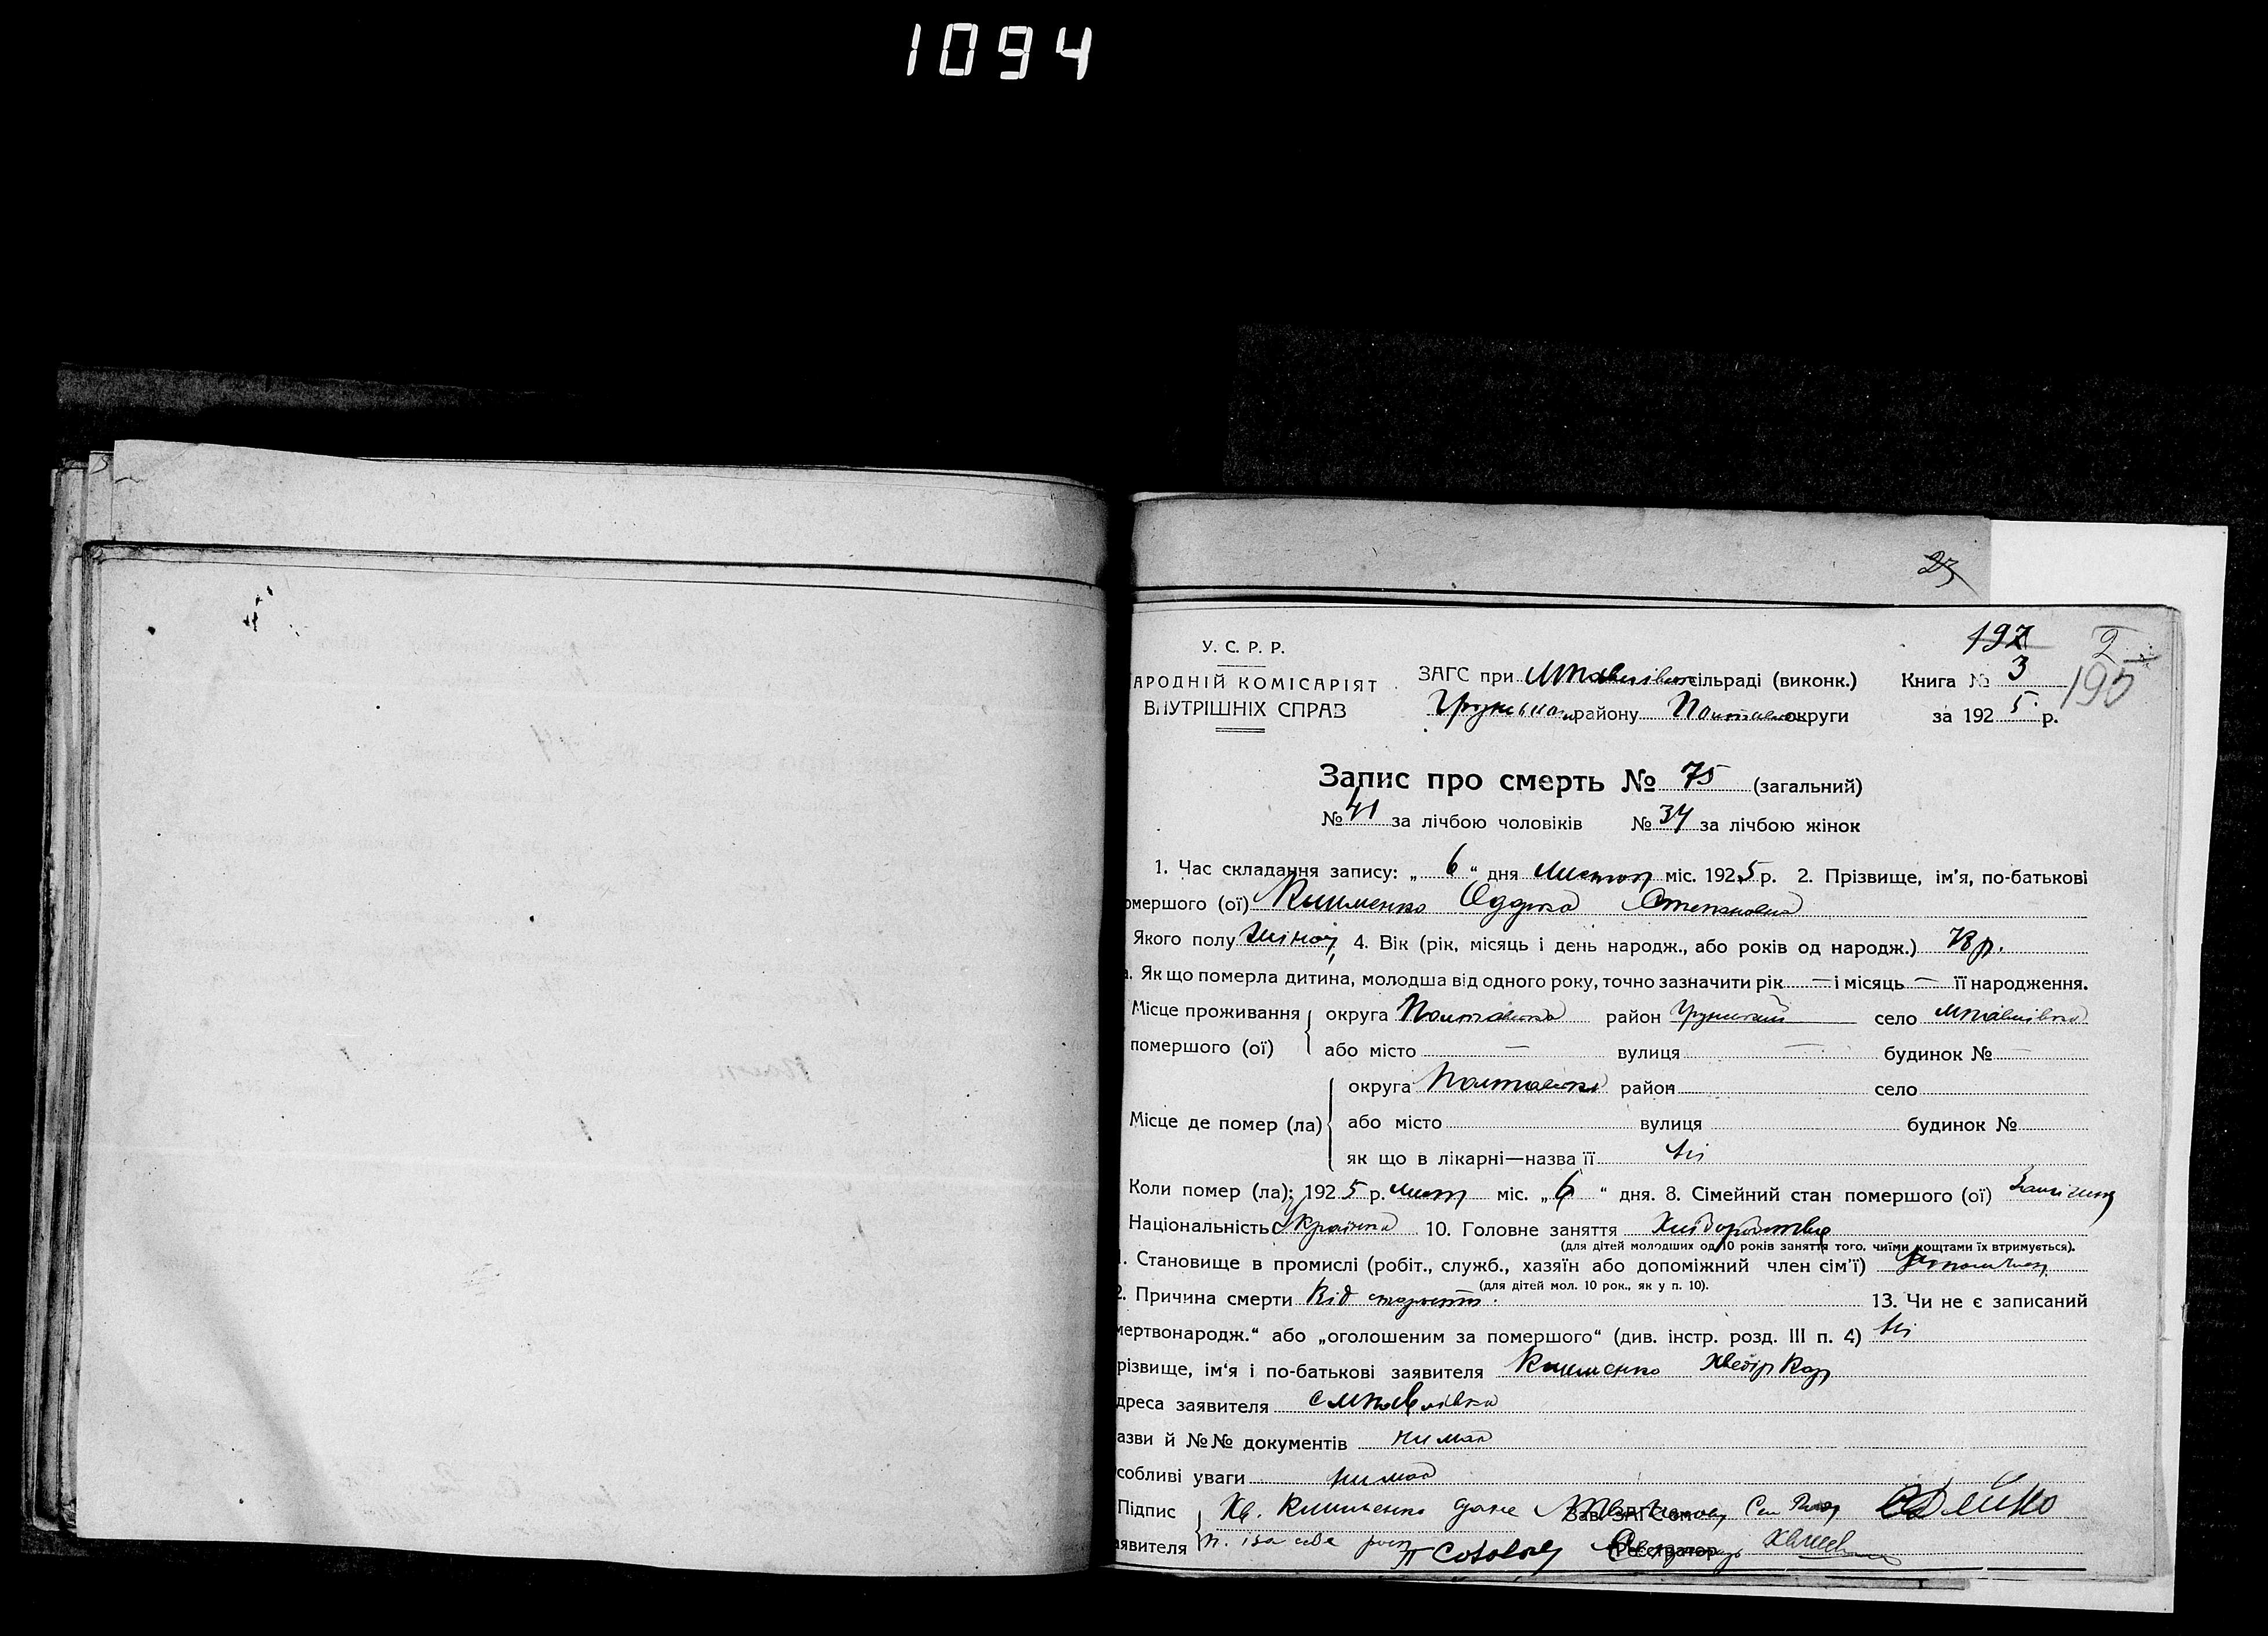 1094
23
У. С. Р. Р.
АРОДНІЙ КОМІСАРІЯТ
ВНУТРІШНІХ СПРАВ
197
2
190
ЗАГС при Мпавлівск сільраді (виконк.) Книга № 3
Грунськ району Полтавськ округи за 1925 р.
Запис про смерть № 75 (загальний)
№ 41 за лічбою чоловіків № 34 за лічбою жінок
1. Час складання запису: „ 6 “ дня Листоп міс. 1925 р. 2. Прізвище, ім'я, по-батькові
омершого (ої) Клименко Степановна
Якого полу жіноч 4. Вік (рік, місяць і день народж., або років од народж.) 78 р.
а. Як що померла дитина, молодша від одного року, точно зазначити рік — і місяць — її народження.
Місце проживання округа Полтавська район Грунський село Мпавлівка
помершого (ої) або місто — вулиця — будинок № —
округа Полтавська район село
Місце де помер (ла) або місто вулиця будинок №
як що в лікарні—назва її Ні
Коли помер (ла): 1925 р. Лист міс. „ 6 “ дня. 8. Сімейний стан помершого (ої)
Національність Українка 10. Головне заняття Хліборобство
(для дітей молодших од 10 років заняття того, чиїми коштами їх втримується).
1. Становище в промислі (робіт., служб., хазяїн або допоміжний член сім'ї)
(для дітей мол. 10 рок., як у п. 10).
2. Причина смерти Від старости. 13. Чи не є записаний
мертвонародж.“ або „оголошеним за помершого“ (див. інстр. розд. III п. 4) Ні
різвище, ім'я і по-батькові заявителя Клименко Хведір
дреса заявителя с Мпавлівка
азви й №№ документів нима
собливі уваги нима
Підпис Хв. Клименко Зав. ЗАГС'ом
аявителя Реєстратор